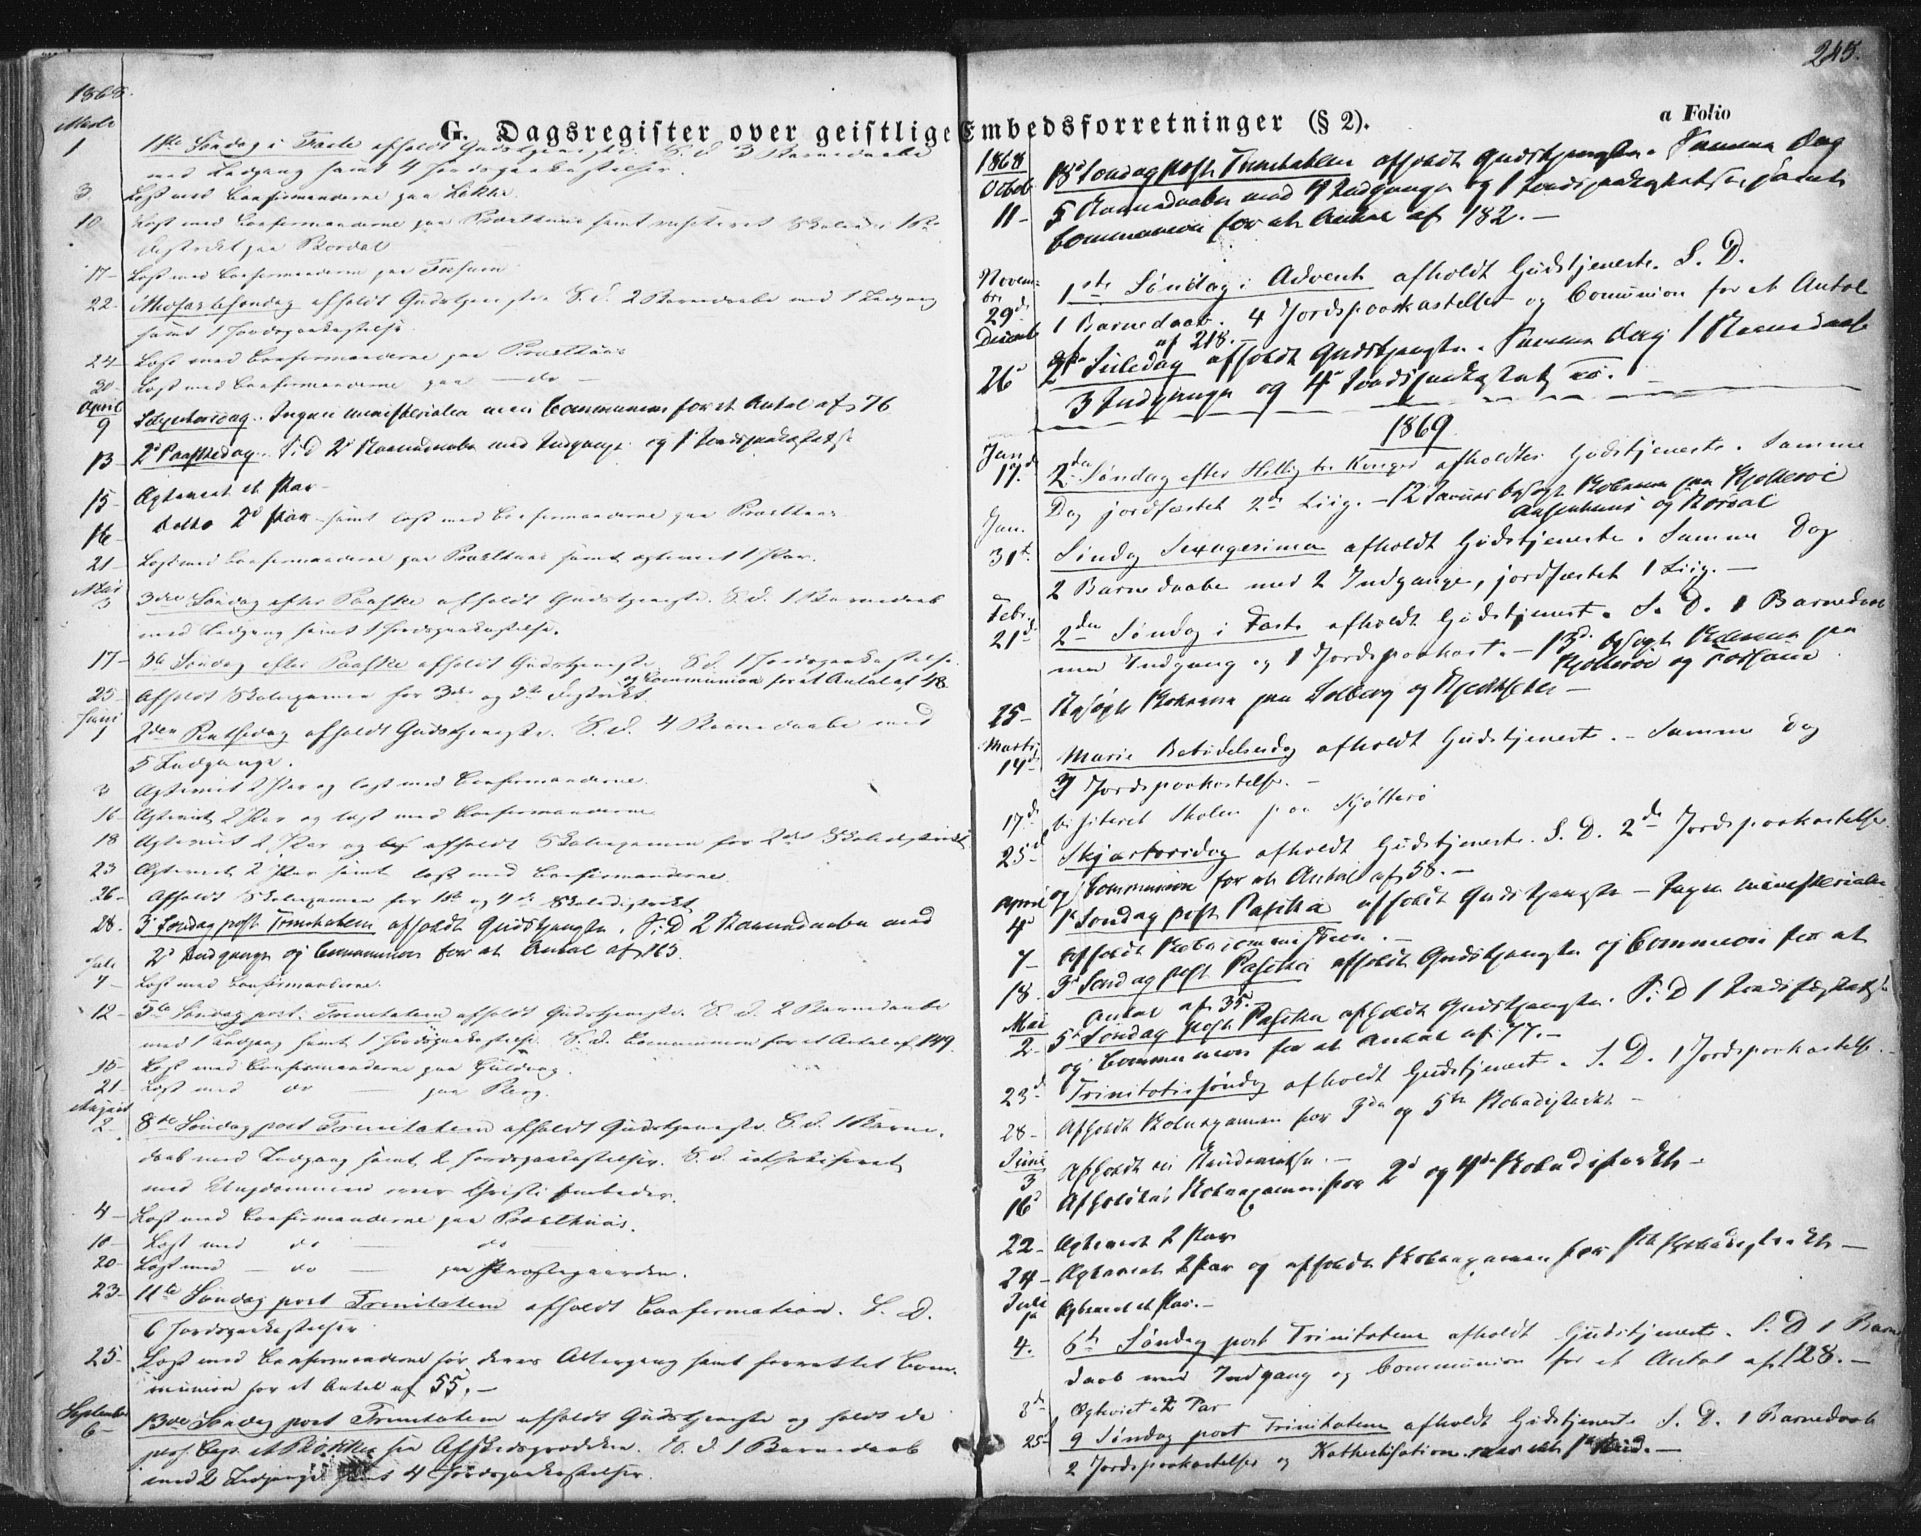 245.
a Folio
G. Dagsregister over geistlige Embedsforretninger (§ 2).
1868.
Marts
1 1ste Søndag i Faste afholdt Gudstjeneste. S. d. 3 Barnedaabe
med Indgang samt 4 Jordspaakastelser.
3. Læst med Confirmanderne paa Lekke.
10 Læst med Confirmanderne paa Præsthuus samt visiteret Skolen i 1ste
District paa Rordal
17- Læst med Confirmanderne paa Forsnes
22. afholdt Gudstjeneste S. d. 2 Barnedaabe med 1 Indgang
samt 1 Jordspaakastelse
24. Læst med Confirmanderne paa Præsthuus
30- Læst med Confirmanderne paa — do —
April
9 Skjærtorsdag. Ingen ministerialia men Communion for et Antal af 76
13- 2d Paaskedag. S. D 2 Barnedaabe med Indgange og 1 Jordspaakastelse
15 Ægteviet et Par
16- Ditto 2d Par samt læst med Confirmanderne paa Præsthuus
21- Læst med Confirmanderne paa Præsthuus samt ægteviet 1 Par.
Mai
3 3die Søndag efter Paaske afholdt Gudstjeneste. S. d. 1 Barnedaab
med Indgang samt 1 Jordspaakastelse.
17- 5te Søndag efter Paaske afholdt Gudstjeneste. S. d. 1 Jordspaakastelse
og Communion for et Antal af 48
25- Afholdt Skoleexamen for 3die og 5te District.
Juni
1 2den Pintsedag afholdt Gudstjeneste. S. d. 4 Barnedaabe med
5 Indgange.
3 Ægteviet 2 Par og læst med Confirmanderne.
16- Ægteviet 2 Par og læst med Confirmanderne
18 Ægteviet 2 Par og afholdt Skoleexamen for 2det Skoledistrict
23 Ægteviet 2 Par samt læst med Confirmanderne.
26- Afholdt Skoleexamen for 1ste og 4de Skoledistrict
28. 3d Søndag post Trinitatem afholdt Gudstjeneste. S. D 2 Barnedaabe med
2d Indgange og Communion for et Antal af 165.
Juli
7 Læst med Confirmanderne.
12- 5te Søndag post. Trinitatem afholdt Gudstjeneste. S. d. 2 Barnedaabe
med 1 Indgang samt 1 Jordspaakastelse. S. d. Communion for et Antal af 149.
15- Læst med Confirmanderne paa Guldvog.
21- Læst med do — paa Berg.
August
2. 8de Søndag post Trinitatem afholdt Gudstjeneste. S. d. 1 Barne-
daab med Indgang samt 2 Jordspaakastelser. S. d. catechiseret
med Ungdommen over Christi Embeder.
4- Læst med Confirmanderne paa Præsthuus.
10- Læst med do — do
20- Læst med — do — paa Præstegaarden.
23- 11te Søndag post Trinitatem afholdt Confirmation. S. D.
6 Jordspaakastelser
25- Læst med Confirmanderne før deres Altergang samt forrettet Com-
munion for et Antal af 55.—
September
6- 13de Søndag post Trinitatem afholdt Gudstjeneste og holdt de
pers. Cap. sin Afskedsprædiken. S. d 1 Barnedaab
med 2 Indgange samt 4 Jordspaakastelser.
1868
Octob
11- 18d Søndag post Trinitatem afholdt Gudstjeneste. Samme Dag
5 Barnedaabe med 4 Indgange og 1 Jordspaakastelse samt
Communion for et Antal af 182.—
Novem-
br.
29d 1ste Søndag i Advent afholdt Gudstjeneste. S. D.
1 Barnedaab. 4 Jordspaakastelser og Comunion for et Antal
af 218.—
Decemb
26d 2d Juledag afholdt Gudstjeneste. Samme Dag 1 Barnedaab
3 Indgange og 4 Jordspaakastelser.
1869
Jan
17.d 2den Søndag efter Hellig tre Konger afholdtes Gudstjeneste. Samme
Dag jordfæstet 2de Liig. — 12 Januar besøgt Skolerne paa Kjøllerøe
og Rordal
Jan.
31te Søndag Sexagesima afholdt Gudstjeneste. Samme Dag
2 Barnedaabe med 2 Indgange, jordfæstet 1 Liig.—
Febr.
21d. 2den Søndag i Faste afholdt Gudstjeneste. S. D. 1 Barnedaab
med Indgang og 1 Jordspaakast. — 13d. besøgt Skolerne paa
Kjøllerøe og Forsnes
25- Besøgt Skolerne paa Solberg og
Marts
14d Marie Bebudelsesdag afholdt Gudstjeneste. — Samme Dag
3 Jordspaakastelser. —
17d. visiteret Skolen paa Kjøllerø
25d Skjærtorsdag afholdt Gudstjeneste. S. D. 2de Jordspaakastelser
og Communion for et Antal af 58.—
April
4d 1d Søndag post Pascha afholdt Gudstjeneste — Ingen ministerialia
7- Afholdt Skolecommission. —
18. 3d Søndag post Pascha afholdt Gudstjeneste og Communion for et
Antal af 35.
Mai
2- 5d Søndag post Pascha afholdt Gudstjeneste. S. D 1 Jordfæstelse
og Communion for et Antal af 77.—
23d Trinitatissøndag afholdt Gudstjeneste. S. D. 1 Jordspaakastelse.—
28- Afholdt Skoleexamen for 3die og 5te Skoledistrict —
Juni
3 Afholdt en —
16d Afholdtes Skoleexamen for 2d og 4de Skoledistrict —
22- Ægteviet 2 Par
24- Ægteviet 2 Par og afholdt Skoleexamen for 1ste Skoledistrict —
Juli
1d Ægteviet et Par.—
4. 6te Søndag post Trinitatem afholdt Gudstjeneste. S. D 1 Barne
daab med Indgang og Communion for et Antal af 128.—
8de Ægteviet 2 Par
25- 9 Søndag post Trinitatem afholdt Gudstjeneste S. D. 1 Barnedaab
2 Jordspaakastelser og Kathechisation over det 1ste Bud.—